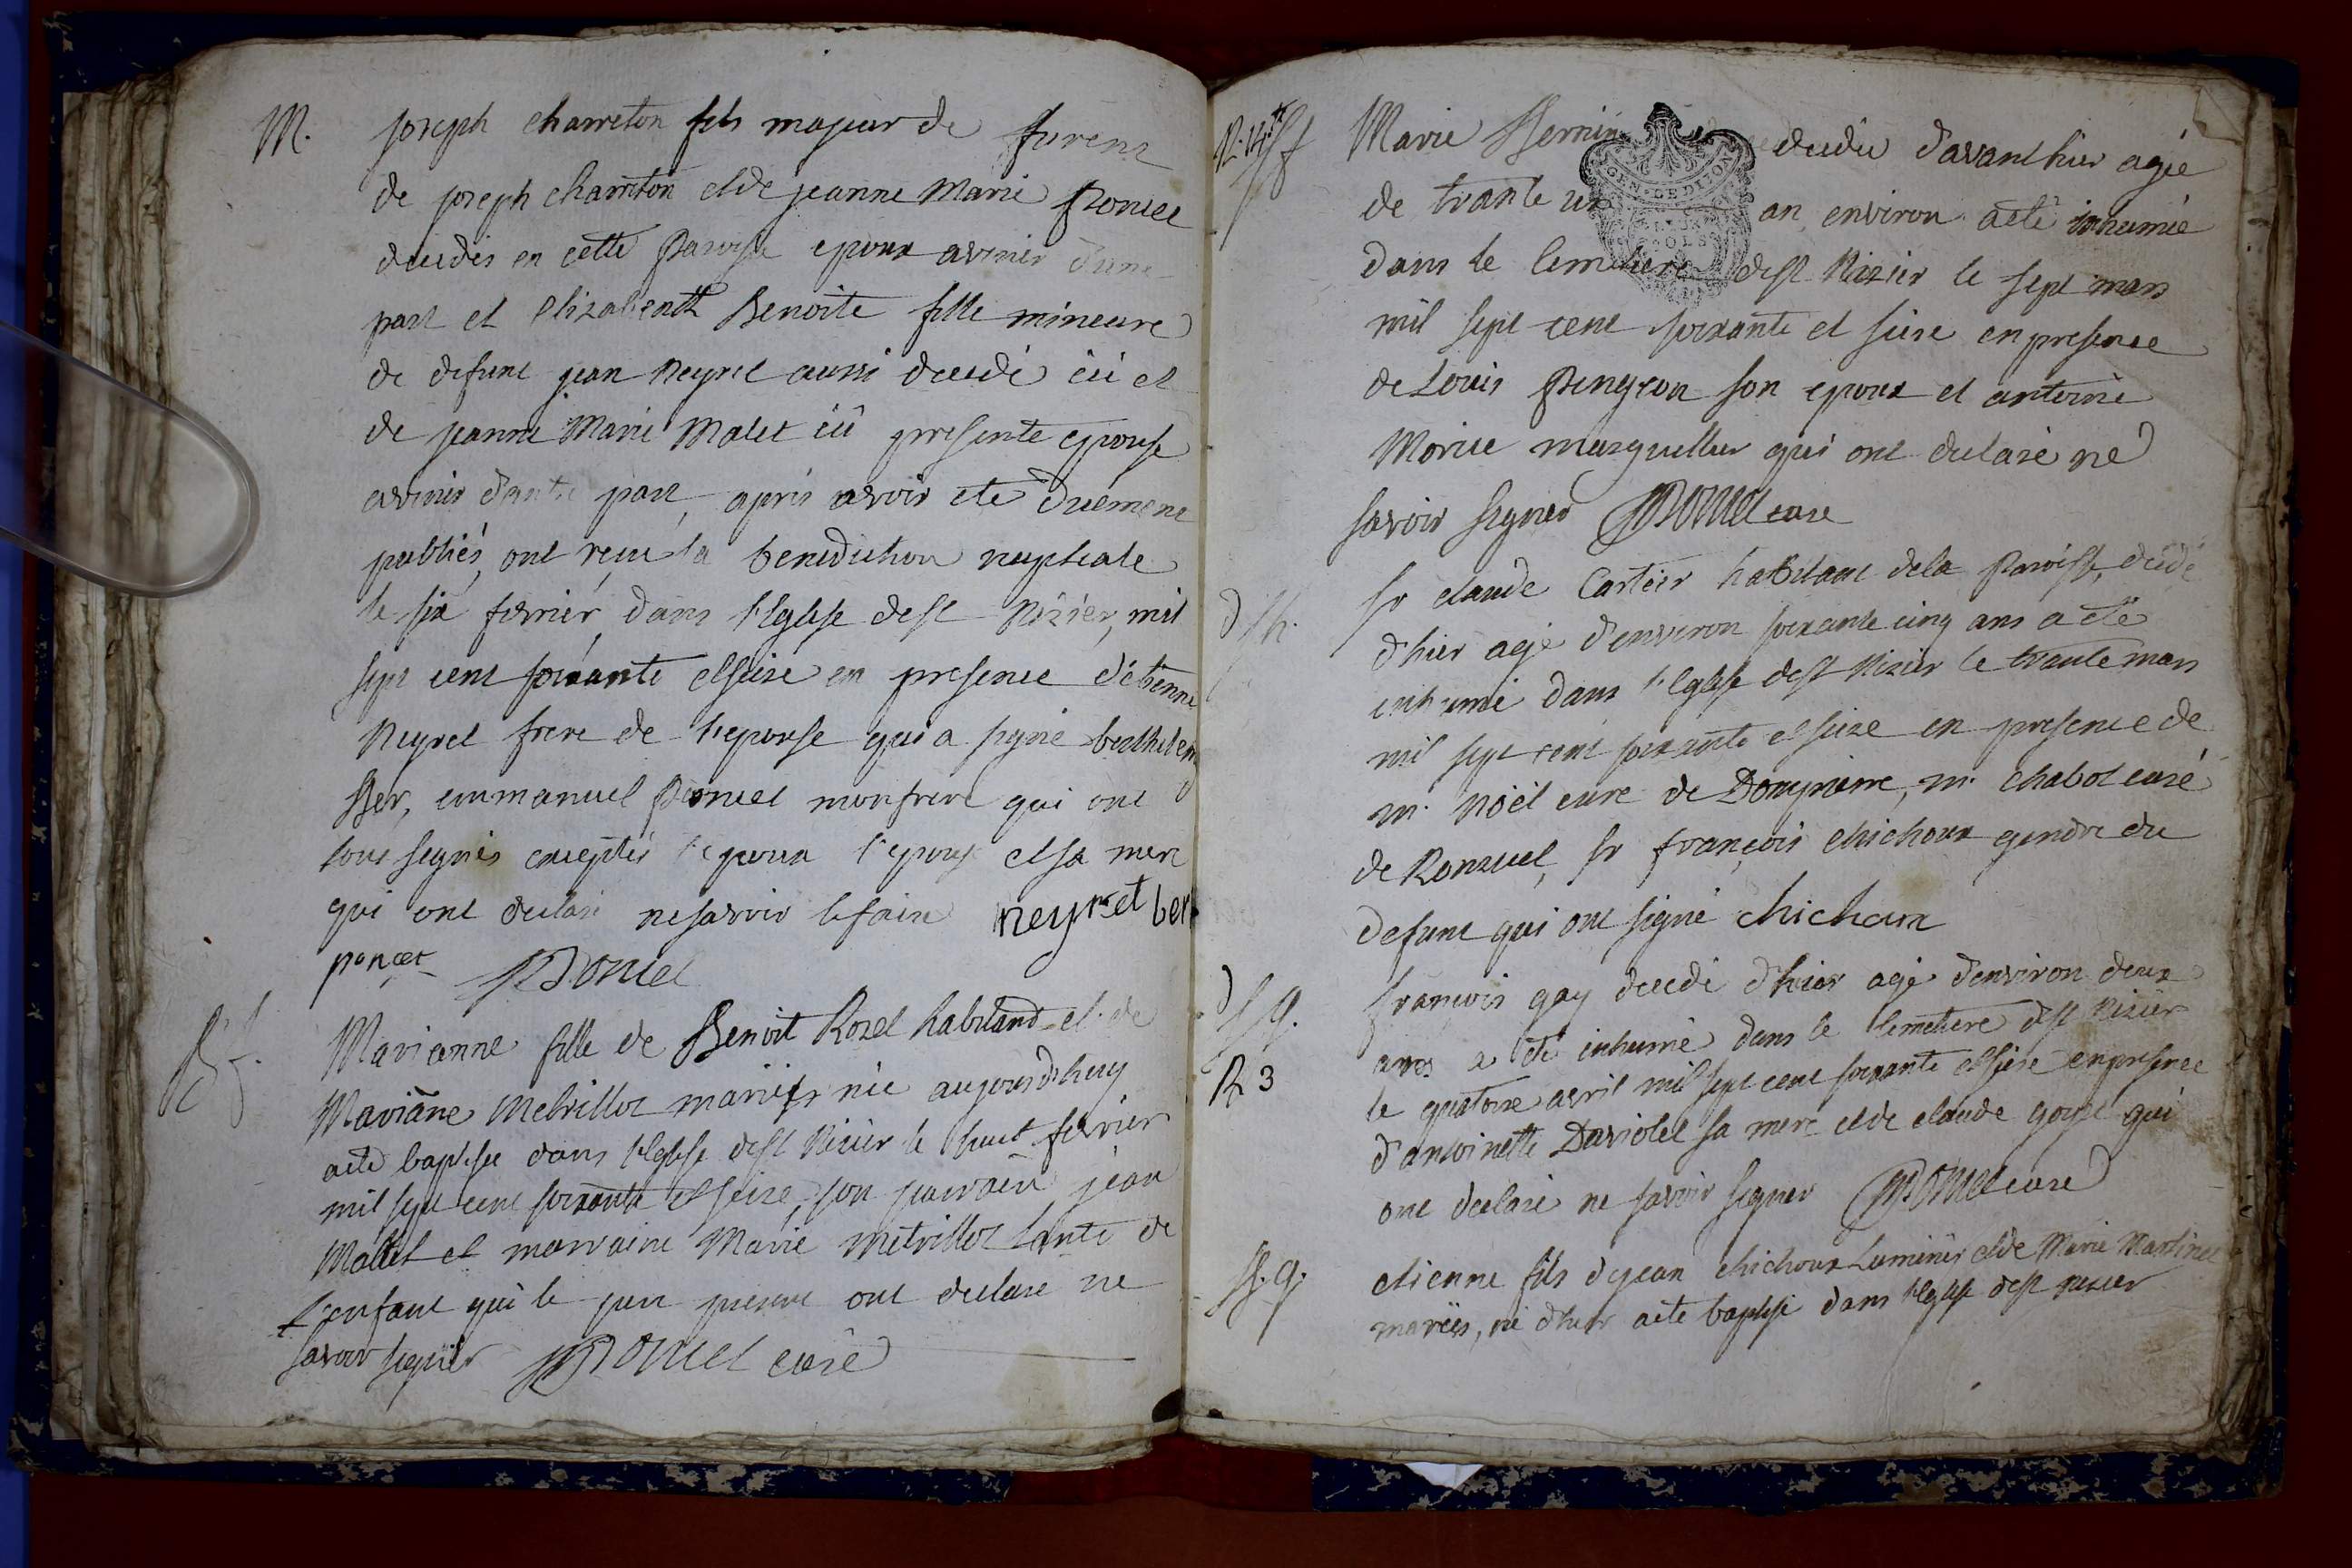 M. joseph charreton fils majeur de furent
de joseph charreton et de jeanne Marie Poncet
decedés en cette Paroisse epoux avenir d'une
part et Elizabenth Benoite fille mineure
de defunt jean Neyret aussi decedé ici et
de jeanne Marie Malet ici presente epouse
avenir d'autre part, apris avoir eté duement
publiés, ont reçu la benediction nuptiale
le six fevrier, dans l'Eglise de st Nizier, mil
sept cent soixante et seize en presence d'étienne
Neyret frere de l'epouse qui a signé berthelem
Ber, emmanuel Poncet mon frere qui ont
tous signés exceptés l'epoux l'epouse et sa mere
qui ont declaré ne savoir le faire neyret ber
poncet Poncet
B f. Marianne fille de Benoit Rozel habitand et de
Mariane Metrillot mariés née aujourd'huy
a eté baptisée dans l'Eglise de st Nizier le huit fevrier
mil sept cent soixante et seize, son parrain jean
Mallet et marraine Marie Metrillot tante de
l'enfant qui le pere present ont declaré ne
savoir signer Poncet curé
Marie Bernin decedée d'avant hier agée
de trante un an environ a eté inhumée
dans le cemetiere de st Nizier le sept mars
mil sept cent soixante et seize en presence
de Louis Pengeon son epoux et antoine
Morice marguellier qui ont declaré ne
savoir signer Poncet curé
GEN. DE DIJON
SOLS
d h. sr claude Cartier habitant de la Paroisse, decedé
d'hier agé d'environ soixante cinq ans a eté
inhumé dans l'Eglise de st Nizier le trante mars
mil sept cent soixante et seize en presence de
mr Noël curé de Dompierre, mr chabot curé
de Ronzuel, sr françois chichoux gendre du
defunt qui ont signé chichoux
d g. françois gay decedé d'hier agé d'environ deux
R 3 ans a eté inhumé dans le cemetiere de st Nizier
le quatorze avril mil sept cent soixante et seize en presence
d'antoinette Daviolet sa mere et de claude goyet qui
ont declaré ne savoir signer Poncet curé
B. g. etienne fils de jean chichoux Luminier et de Marie Martinet
mariés, né d'hier a eté baptisé dans l'Eglise de st nizier